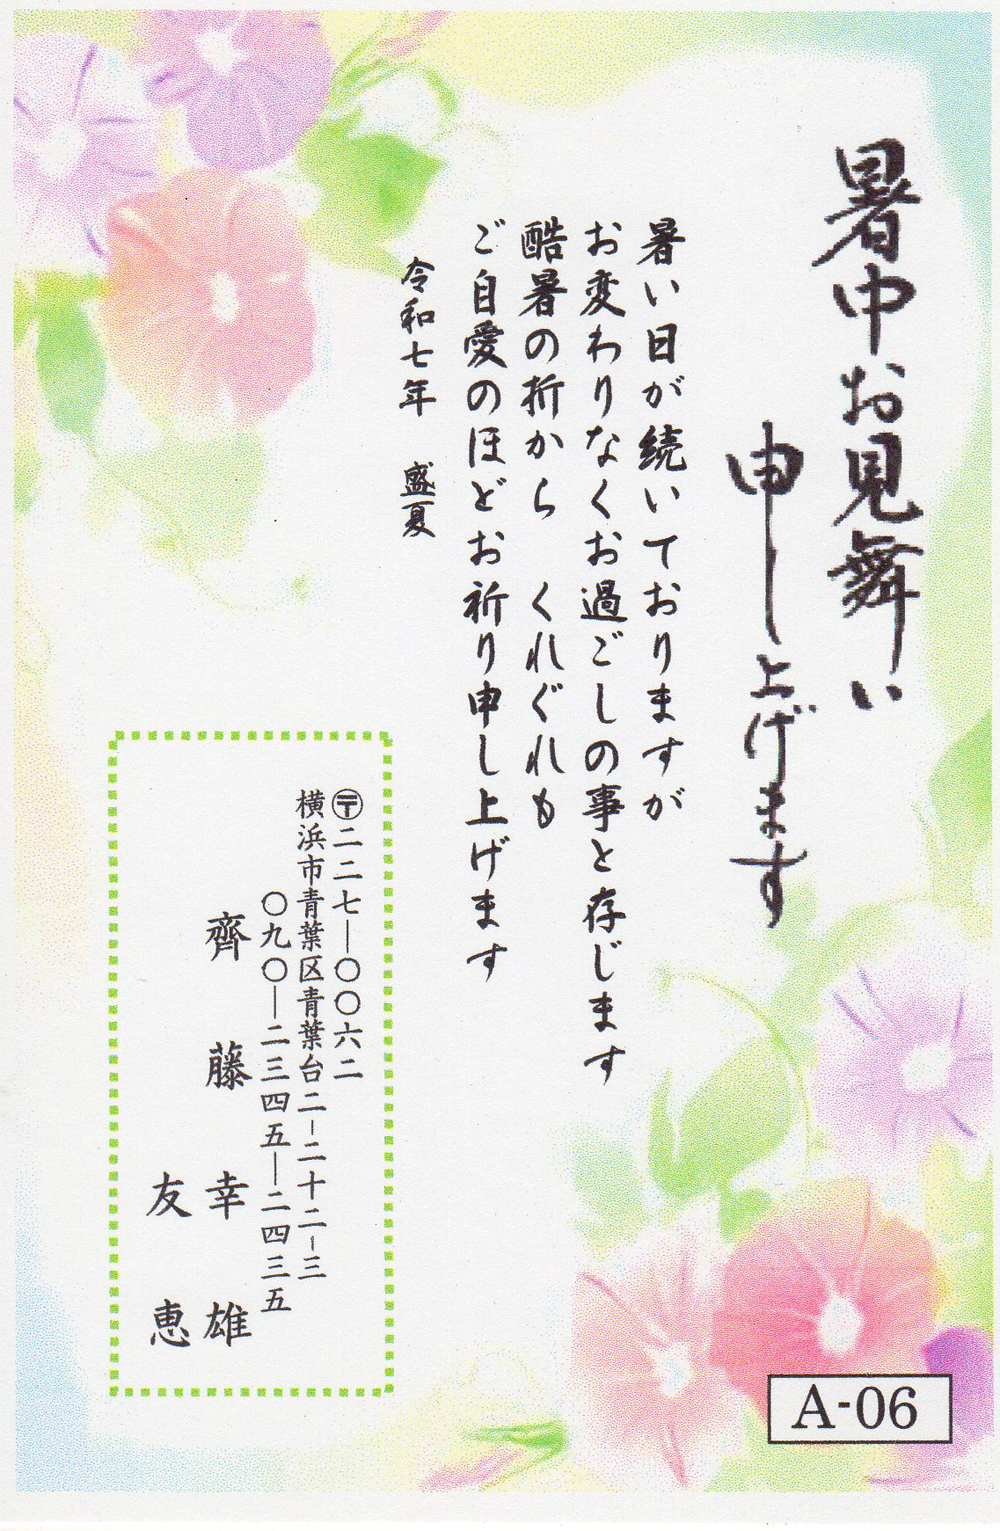 暑中お見舞い
申し上げます
暑い日が続いておりますが
お変わりなくお過ごしの事と存じます
酷暑の折から　くれぐれも
ご自愛のほどお祈り申し上げます
令和七年　盛夏
〒二二七―〇〇六二
横浜市青葉区青葉台二-二十二-三
〇九〇―二三四五―二四三五
齊藤幸雄
友恵
A-06